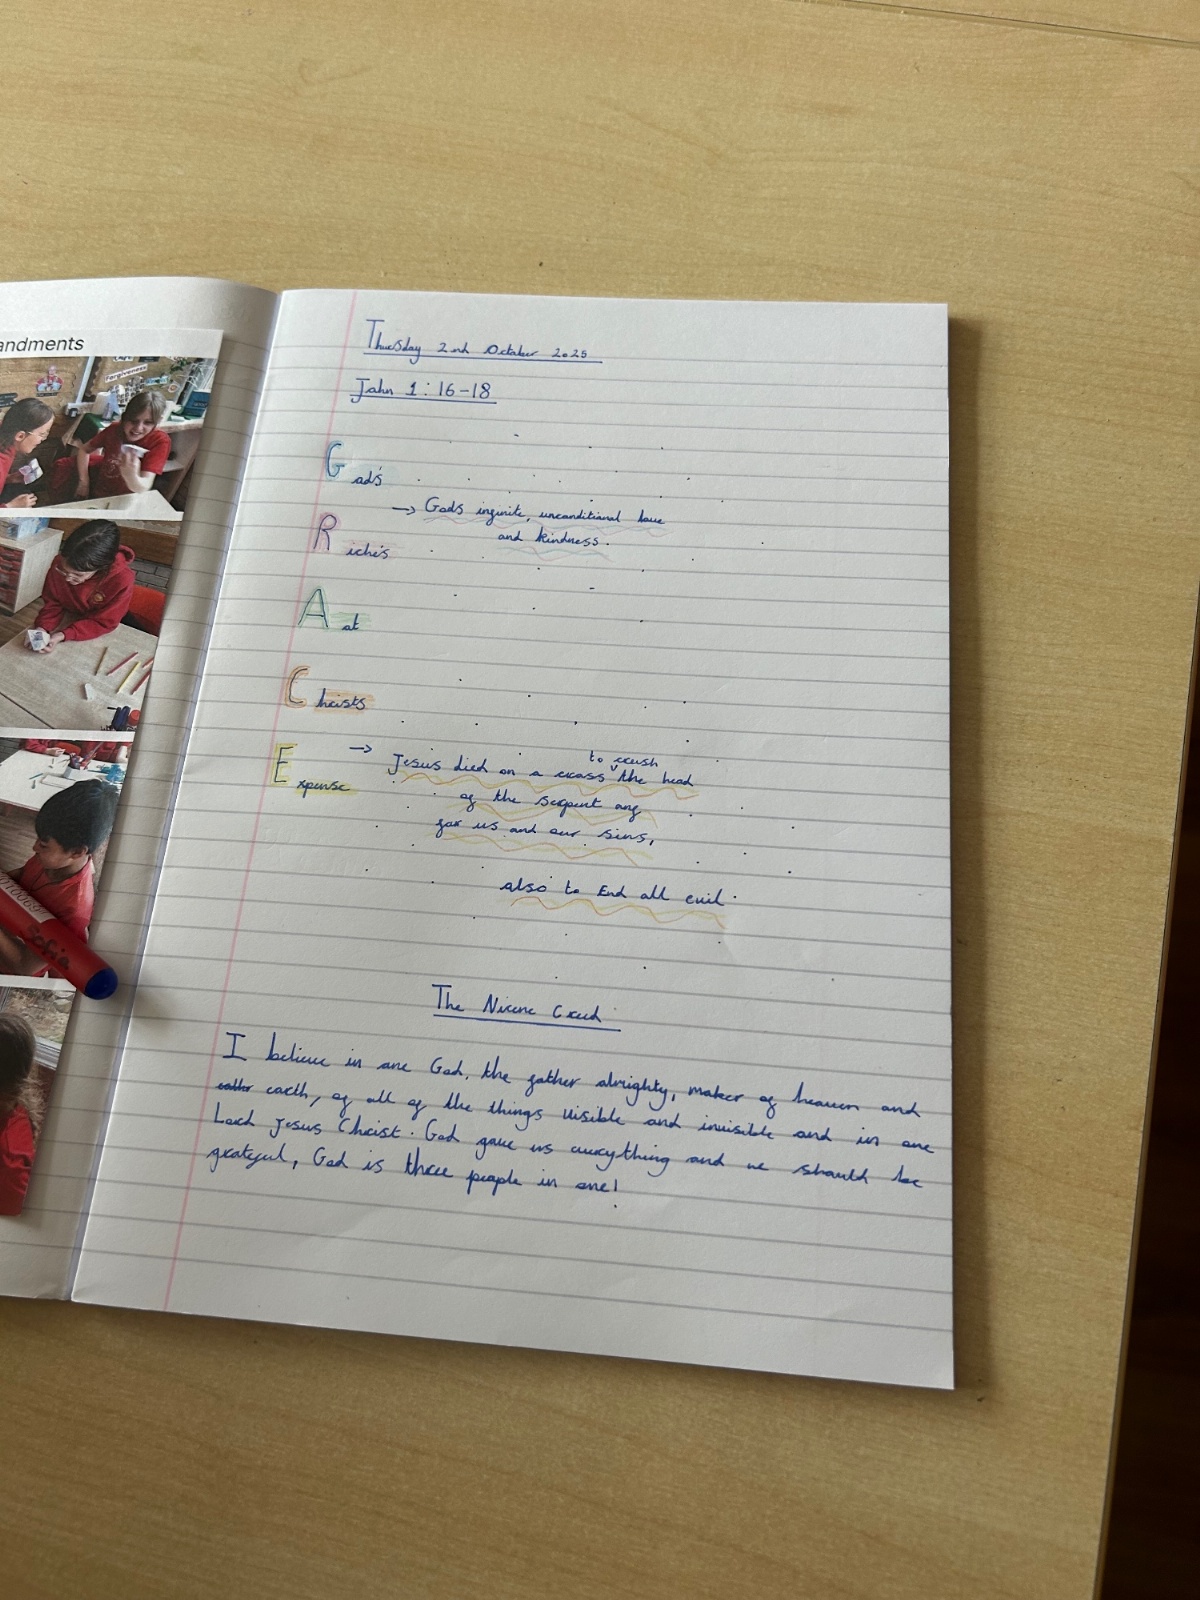 andments
Forgiveness
Thursday 2nd October 2025
John 1:16-18
God's
→ Gods infinite, unconditional love
and kindness.
Riche's
A at
Christs
Expense
→ Jesus died on a cross to crush the head
of the serpent and
for us and our sins,
also to End all evil.
Sofia
The Nicene Creed
I believe in one God, the father almighty, maker of heaven and
earth, of all of the things visible and invisible and in one
Lord Jesus Christ. God gave us everything and we should be
grateful, God is three people in one!